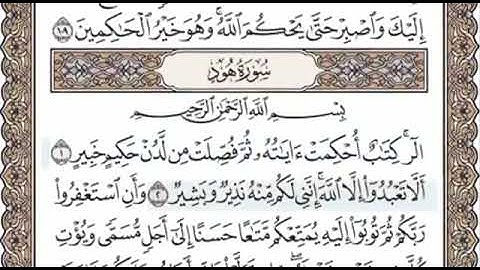 إِلَيْكَ وَٱصْبِرْ حَتَّىٰ يَحْكُمَ ٱللَّهُ ۚ وَهُوَ خَيْرُ ٱلْحَـٰكِمِينَ ١٠٩
سُورَةُ هُودٍ
بِسْمِ ٱللَّهِ ٱلرَّحْمَـٰنِ ٱلرَّحِيمِ
الٓر ۚ كِتَـٰبٌ أُحْكِمَتْ ءَايَـٰتُهُۥ ثُمَّ فُصِّلَتْ مِن لَّدُنْ حَكِيمٍ خَبِيرٍ ١
أَلَّا تَعْبُدُوٓا۟ إِلَّا ٱللَّهَ ۚ إِنَّنِى لَكُم مِّنْهُ نَذِيرٌ وَبَشِيرٌ ٢ وَأَنِ ٱسْتَغْفِرُوا۟
رَبَّكُمْ ثُمَّ تُوبُوٓا۟ إِلَيْهِ يُمَتِّعْكُم مَّتَـٰعًا حَسَنًا إِلَىٰٓ أَجَلٍ مُّسَمًّى وَيُؤْتِ